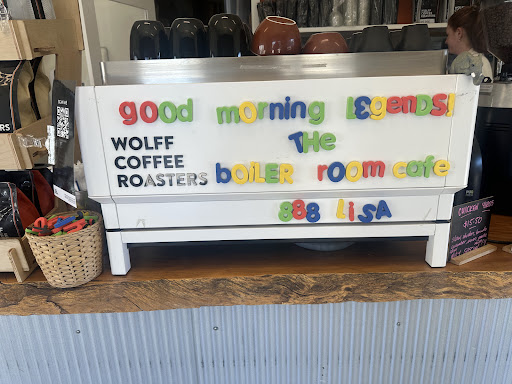 good morning LEgenDS!
THe
WOLFF
COFFEE
ROASTERS
boiLER room cafe
888 LiSA
$15.50